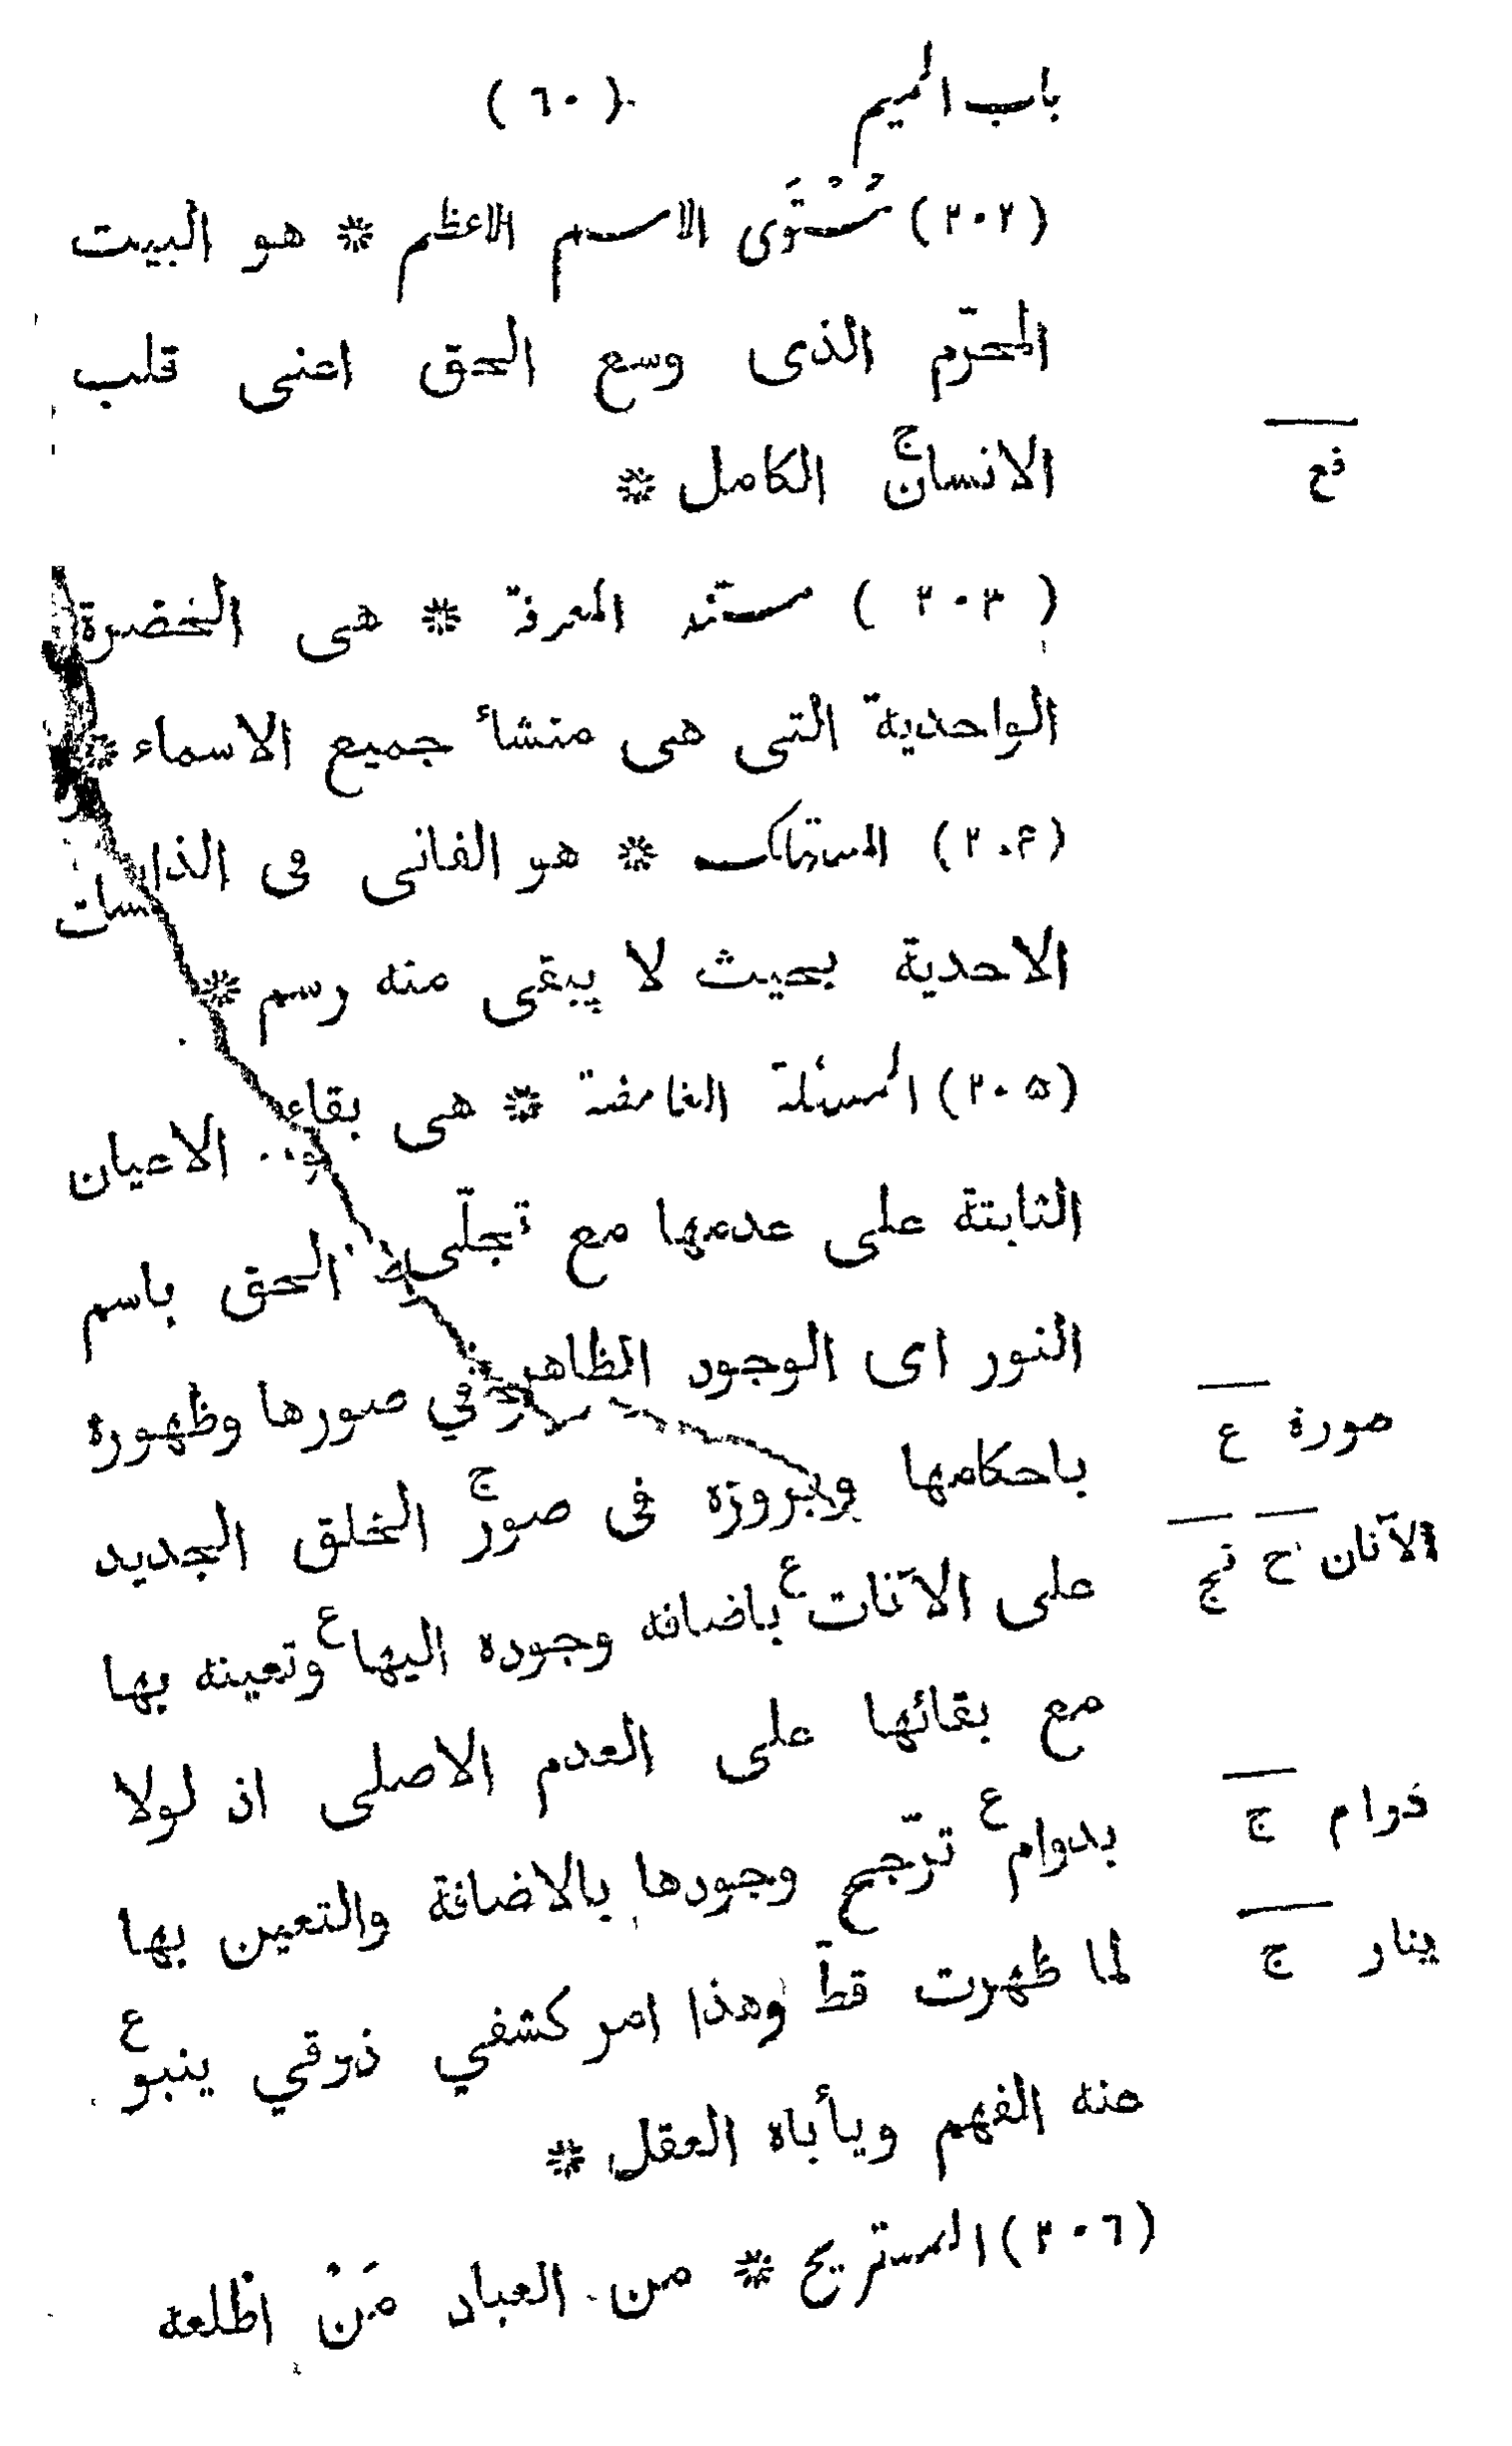 باب الميم (٦٠)
(٢٠٢) مُسْتَوَى الاسم الاعظم * هو البيت
المحرّم الذى وسع الحق اعنى قلب
الانسان ج الكامل *
فع
(٢٠٣) مستند المعرفة * هى الخضرة
الواحدية التى هى منشأ جميع الاسماء *
(٢٠۴) المستهلك * هو الفانى فى الذات
الاحدية بحيث لا يبقى منه رسم *
(٢٠۵) المسئلة الغامضة * هى بقاء الاعيان
الثابتة على عدمها مع تجلّى الحق باسم
النور اى الوجود الظاهر في صورها وظهوره
صورة ع
باحكامها وبروزه فى صور ج الخلق الجديد
الآنان ح فج
على الآنات ع باضافه وجوده اليها ع وتعينه بها
مع بقائها على العدم الاصلى اذ لولا
دوام ج
بدوام ع ترّجح وجودها بالاضافة والتعين بها
ينار ج
لما ظهرت قطّ وهذا امر كشفي ذوقي ينبو ع
عنه الفهم ويأباه العقل *
(٢٠٦) المستريح * من العباد مَنْ اطلعه